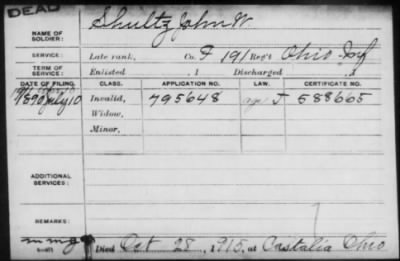 DEAD
NAME OF SOLDIER: Shultz John W.
SERVICE: Late rank, Co. F 191 Reg't Ohio Inf
TERM OF SERVICE: Enlisted , 1 Discharged , 1
DATE OF FILING. CLASS. APPLICATION NO. LAW. CERTIFICATE NO.
1890 July 10 Invalid, 795648 J 588665
Widow,
Minor,
ADDITIONAL SERVICES:
REMARKS:
Died Oct 28, 1915, at Castalia Ohio